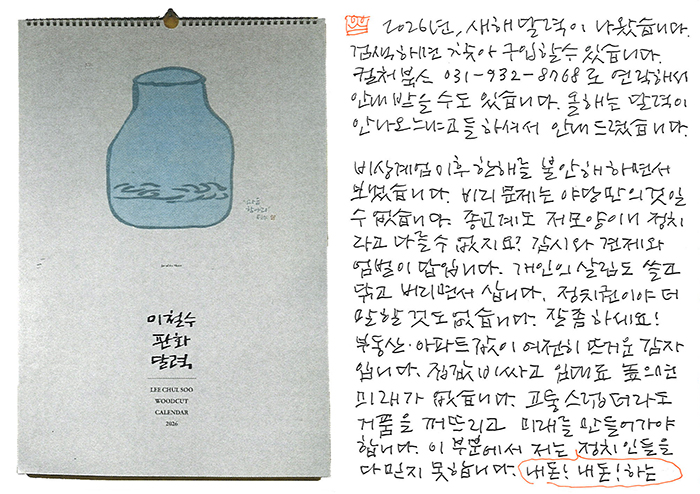 이철수
판화
달력
LEE CHUL SOO
WOODCUT
CALENDAR
2026
2026년, 새해 달력이 나왔습니다.
검색하면 찾아 구입할 수 있습니다.
컬처북스 031-932-8768로 연락해서
안내 받을 수도 있습니다. 올해는 달력이
안나오느냐고들 하셔서 안내 드렸습니다.
비상계엄 이후 한해를 불안해 하면서
보냈습니다. 비리 문제는 야당만의 것일
수 없습니다. 종교계도 저모양이니 정치
라고 다를 수 없지요? 감시와 견제와
엄벌이 답입니다. 개인의 살림도 쓸고
닦고 버리면서 삽니다. 정치권이야 더
말할 것도 없습니다. 잘 좀 하세요!
부동산·아파트값이 여전히 뜨거운 감자
입니다. 집값 비싸고 임대료 높으면
미래가 없습니다. 고통스럽더라도
거품을 꺼뜨리고 미래를 만들어가야
합니다. 이 부분에서 저는 정치인들을
다 믿지 못합니다. 내돈! 내돈! 하는